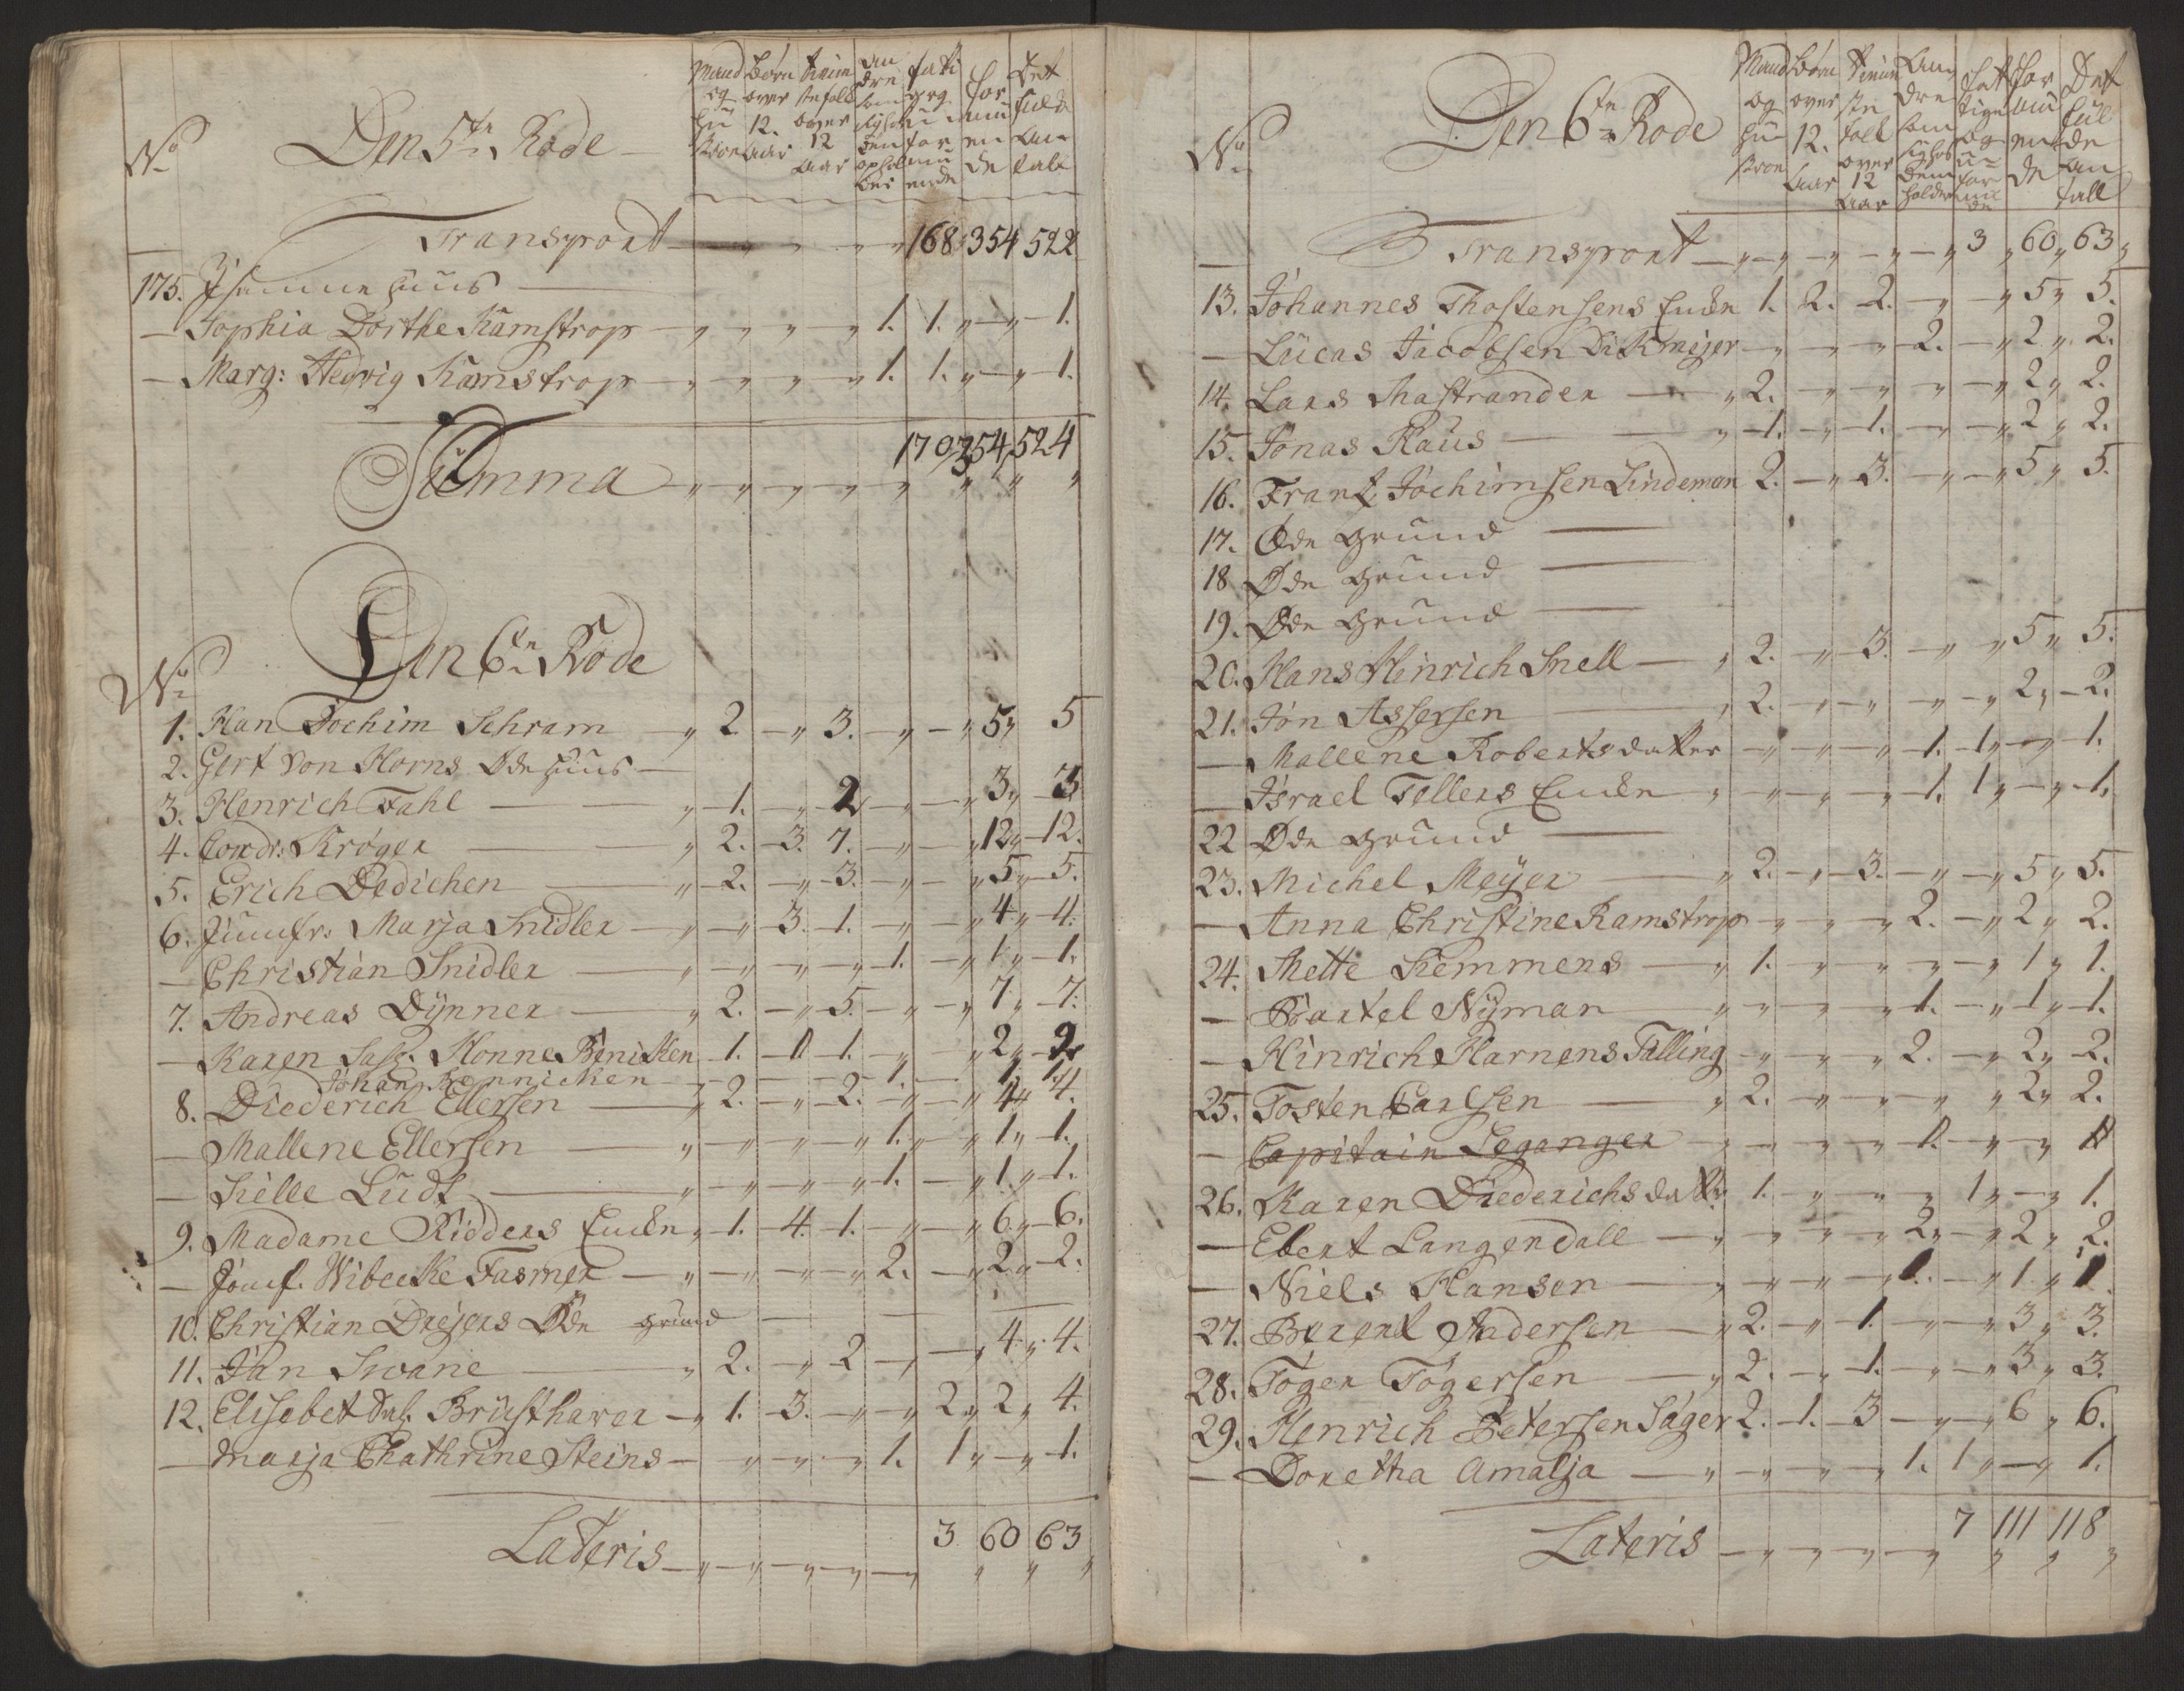 No Den 5te Rode
Mand og Hustroe
Børn over 12. Aar
Tienste folk over 12 Aar
Andre som
fatige og uformuende
formuende
Det fulde Antall
Transport 168 354 522
175. huus
Sophia Dorthe Kamstrop 1. 1. 1.
Marg: Hedvig Kamstrop 1. 1. 1.
Summa 170 354 524
No Den 6te Rode
1. Han Jochim Schram 2. 3. 5 5
2. Gert Von Horns Øde huus
3. Henrich Fahl 1. 2 3 3
4. Condr: Krøger 2. 3. 7. 12 12.
5. Erich Dedichen 2. 3. 5 5.
6. Jumfr: Marja Snidler 3. 1. 4 4.
Christian Snidler 1. 1 1.
7. Andreas Dÿnner 2. 5. 7. 7.
Karen Sal. Honne Beniken 1. 1. 2 2
Johan Bennichen 1. 1. 1.
8. Diederich Ellersen 2. 2. 4 4.
Mallene Ellersen 1. 1 1.
Sille Ludt 1. 1 1.
9. Madame Ridders Encke 1. 4. 1. 6. 6.
Jomf. Wibecke Fasmer 2. 2 2.
10. Christian Drejers Øde grund
11. Jan Svane 2. 2 4 4.
12. Elisebet Sal. Brüsthaver 1. 3. 2 2 4.
Marja Chathrine Steins 1. 1 1.
Lateris 3 60 63
No Den 6te Rode
Mand og Hustroe
Børn over 12. Aar
Tienste folk over 12 Aar
Andre som sig hos dem holder
fattige og uformuende
formuende
Det fulde Antall
Transport 3 60 63
13. Johannes Thostensens Encke 1. 2. 2. 5 5.
Lucas Jacobsen Dikmejer 2. 2 2.
14. Lars Mastrander 2. 2 2.
15. Jonas Raus 1. 1. 2 2.
16. Frantz Jochimsen Lindeman 2. 3. 5 5.
17. Øde grund
18 Øde grund
19. Øde grund
20. Hans Hinrich Snell 2. 3. 5 5.
21. Jón Assersen 2. 2 2.
Mallene Robertsdatter 1. 1 1.
Israel Tellers Encke 1. 1 1.
22 Øde grund
23. Michel Meÿer 2. 3. 5 5.
Anna Christine Ramstrop 2. 2 2.
24. Mette Siemmens 1. 1 1.
Bartel Nyman 1. 1 1.
Hinrich Harnens Talling 2. 2 2.
25. Tosten Carlsen 2. 2 2.
Capitain Leganger
26. Karen Diederichsdatter 1. 1 1.
Ebert Langendall 2 2 2.
Niels Hansen 1. 1 1
27. Berent Andersen 2. 1. 3 3.
28. Töger Tögersen 2. 1. 3 3.
29. Henrich Petersen Ságer 2. 1. 3 6 6.
Doretha Amalja 1. 1 1.
Lateris 7 111 118